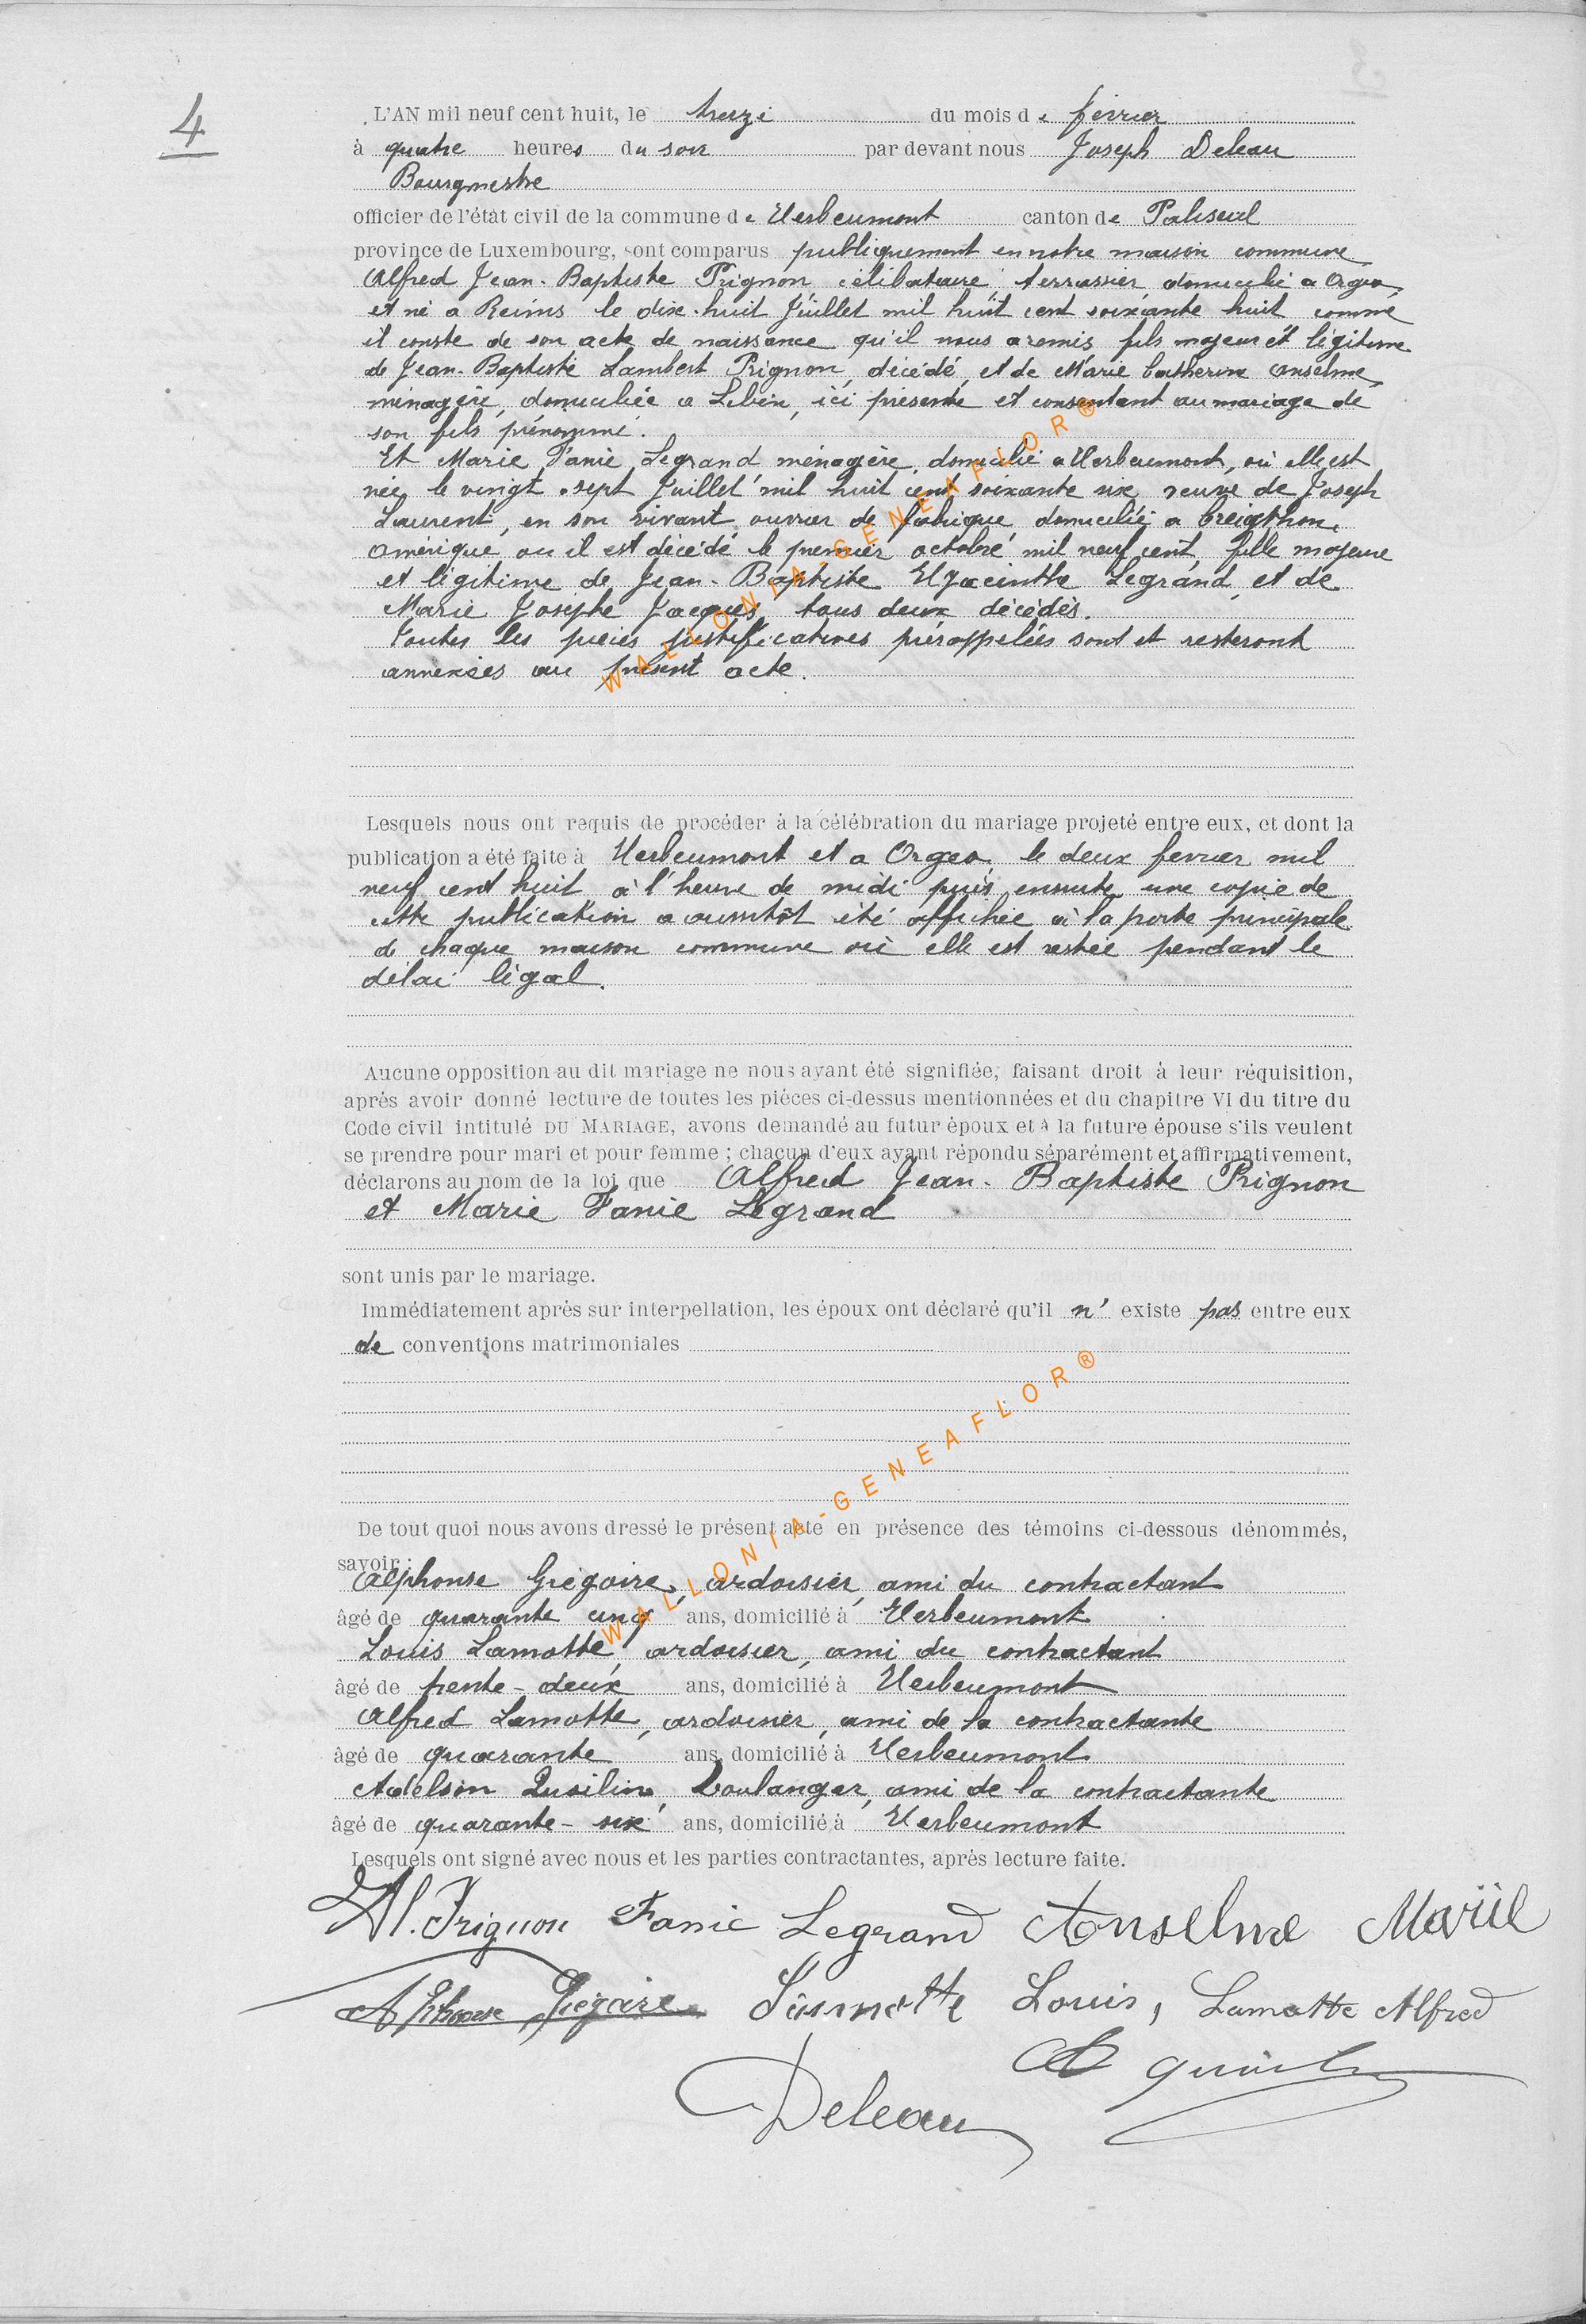 4
L'AN mil neuf cent huit, le treize du mois de février
à quatre heures du soir par devant nous Joseph Deleau
Bourgmestre
officier de l'état civil de la commune de Herbeumont canton de Paliseul
province de Luxembourg, sont comparus publiquement en notre maison commune
Alfred Jean-Baptiste Prignon, célibataire, terrassier domicilié a Orgeo,
et né a Reims le dix-huit Juillet mil huit cent soixante huit comme
il conste de son acte de naissance qu'il nous a remis fils majeur et légitime
de Jean-Baptiste Lambert Prignon, décédé, et de Marie Catherine Anselme,
ménagère, domiciliée a Libin, ici présente et consentant au mariage de
son fils prénommé.
Et Marie Fanie Legrand ménagère domicilié a Herbeumont, où elle est
née le vingt-sept Juillet mil huit cent soixante six veuve de Joseph
Laurent, en son vivant ouvrier de fabrique domicilié a
Amérique, ou il est décédé le premier octobre mil neuf cent, fille majeure
et légitime de Jean-Baptiste Hyacinthe Legrand et de
Marie Josèphe Jacques tous deux décédés.
Toutes les pièces justificatives prérappelées sont et resteront
annexées au présent acte.
Lesquels nous ont requis de procéder à la célébration du mariage projeté entre eux, et dont la
publication a été faite à Herbeumont et a Orgeo le deux fevrier mil
neuf cent huit à l'heure de midi puis ensuite une copie de
cette publication a aussitôt été affichée à la porte principale
de chaque maison commune où elle est restée pendant le
délai légal.
Aucune opposition au dit mariage ne nous ayant été signifiée, faisant droit à leur réquisition,
après avoir donné lecture de toutes les pièces ci-dessus mentionnées et du chapitre VI du titre du
Code civil intitulé DU MARIAGE, avons demandé au futur époux et à la future épouse s'ils veulent
se prendre pour mari et pour femme ; chacun d'eux ayant répondu séparément et affirmativement,
déclarons au nom de la loi que Alfred Jean-Baptiste Prignon
et Marie Fanie Legrand
sont unis par le mariage.
Immédiatement après sur interpellation, les époux ont déclaré qu'il n' existe pas entre eux
de conventions matrimoniales
De tout quoi nous avons dressé le présent acte en présence des témoins ci-dessous dénommés,
savoir :
Alphonse Grégoire, ardoisier, ami du contractant
âgé de quarante cinq ans, domicilié à Herbeumont
Louis Lamotte, ardoisier, ami du contractant
âgé de trente-deux ans, domicilié à Herbeumont
Alfred Lamotte, ardoisier, ami de la contractante
âgé de quarante ans, domicilié à Herbeumont
Adelson Boulanger, ami de la contractante
âgé de quarante-six ans, domicilié à Herbeumont
Lesquels ont signé avec nous et les parties contractantes, après lecture faite.
Al. Prignon Fanie Legrand Anselme Marie
Alphonse Grégoire Lamotte Louis, Lamotte Alfred
Deleau
WALLONIA-GENEAFLOR®
WALLONIA-GENEAFLOR®